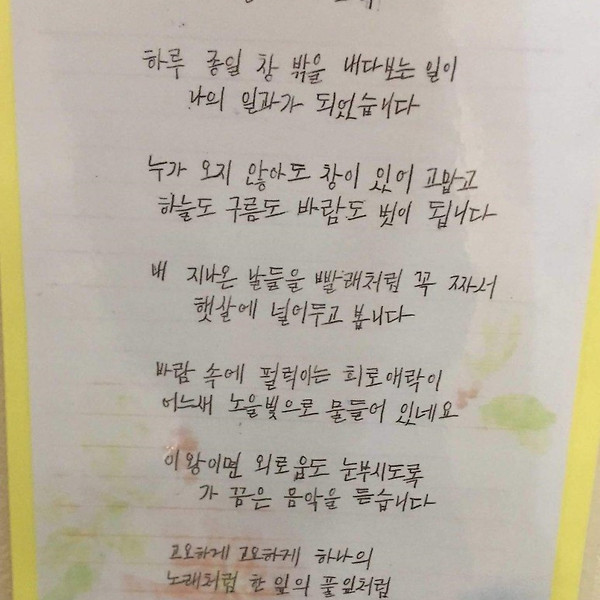 하루 종일 창 밖을 내다보는 일이
나의 일과가 되었습니다
누가 오지 않아도 창이 있어 고맙고
하늘도 구름도 바람도 벗이 됩니다
내 지나온 날들을 빨래처럼 꼭 짜서
햇살에 널어두고 봅니다
바람 속에 펄럭이는 희로애락이
어느새 노을빛으로 물들어 있네요
이왕이면 외로움도 눈부시도록
가 끔은 음악을 듣습니다
고요하게 고요하게 하나의
노래처럼 한 잎의 풀잎처럼